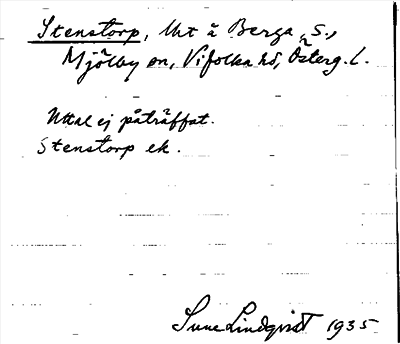 Stenstorp, Uht å Berga, S.,
Mjölby sn, Vifolka hd, Österg. l.
Uttal ej påträffat.
Stenstorp ek.
Sune Lindqvist 1935